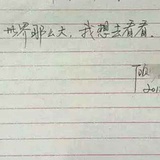 世界那么大，我想去看看。
201